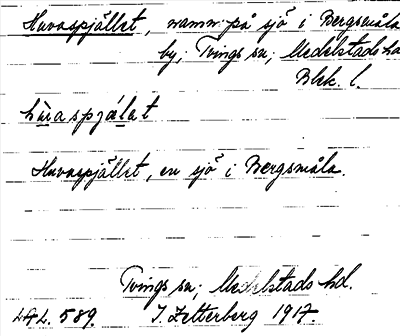 Huvaspjället, namn på sjö i Bergsmåla
by, Tvings sn, Medelstads hd
Blek. l.
hùaspjǽlat
Huvaspjället, en sjö i Bergsmåla.
Tvings sn, Medelstads hd.
589. J. Zetterberg 1917.